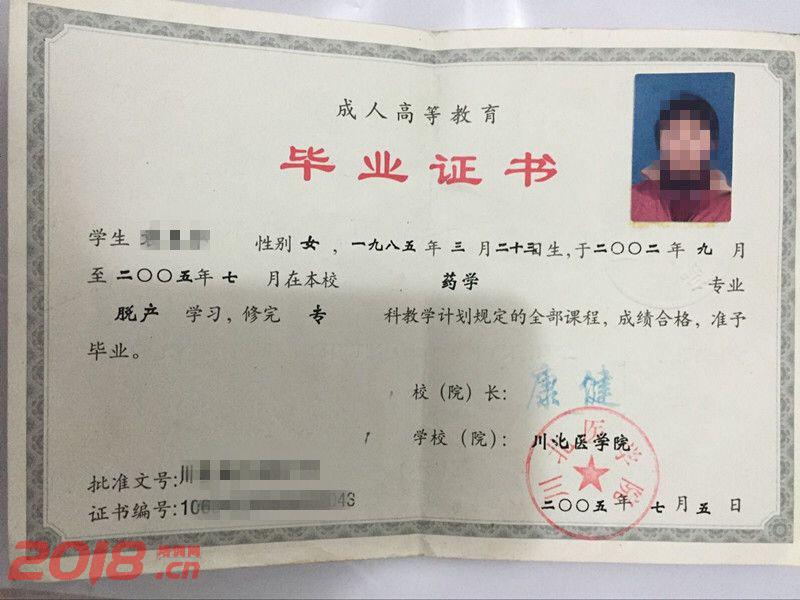 成人高等教育
毕业证书
学生 性别 女，一九八五年 三 月二十三日生，于二〇〇二年 九 月
至二〇〇五年 七 月在本校 药学 专业
脱产 学习，修完 专 科教学计划规定的全部课程，成绩合格，准予
毕业。
校（院）长：康健
学校（院）：川北医学院
批准文号:川
证书编号:10 043
二〇〇五年 七 月 五 日
川北医学院
2018培训网.cn